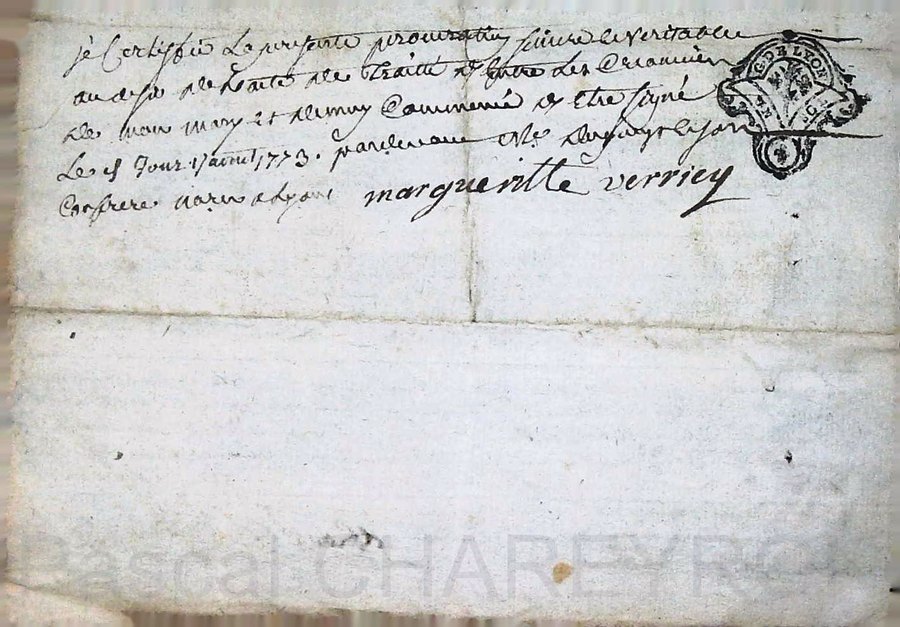 je Certiffie La presente procuration sincere & veritable
au desir de Lacte de Traitté d'Entre Les Creanciers
de mon mary et de moy Commencé d Etre signé
Le Jour 17 aoust 1773. pardevant Me. Lyon
Confrere nores a Lyon margueritte verriey
G. DE LYON
Pascal CHAREYRO